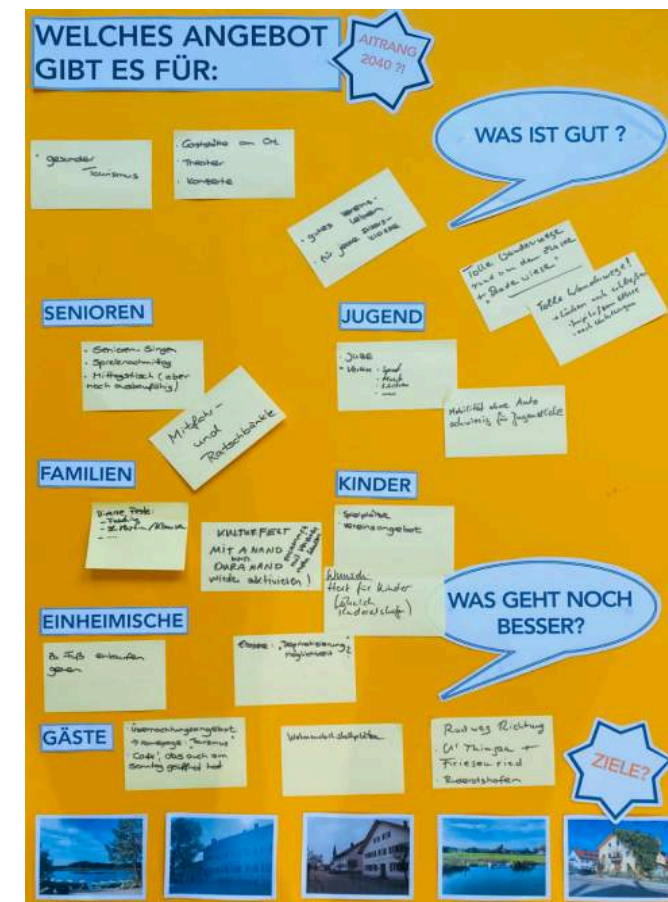 WELCHES ANGEBOT
GIBT ES FÜR:
AITRANG
2040 ?!
WAS IST GUT ?
· gesunder
Tourismus
· Gaststätte am Ort
· Theater
· Konzerte
· gutes Vereins-
leben
· für jede Alters-
klasse
Tolle Wanderwege
rund um den
Tolle Wanderwege!
SENIOREN
· Senioren-Singen
· Spielenachmittag
· Mittagstisch (aber
noch ausbaufähig)
Mitfahr-
und
Ratschbänkle
JUGEND
· JUBE
· Vereine · Sport
· Musik
Mobilität ohne Auto
schwierig für Jugendliche
FAMILIEN
Diverse Feste:
- Fasching
- ...
KULTURFEST
MITANAND
DURANAND
wieder aktivieren!
KINDER
· Spielplätze
· Vereinsangebot
Wunsch:
Hort für Kinder
(ähnlich
Ruderatshofen)
WAS GEHT NOCH
BESSER?
EINHEIMISCHE
Zu Fuß einkaufen
gehen
GÄSTE
· Übernachtungsangebot
→ Homepage "Tourismus"
· Café, das auch am
Sonntag geöffnet hat
Wohnmobilstellplätze
Radweg Richtung
· U'Thingau +
Friesenried
· Ruderatshofen
ZIELE?